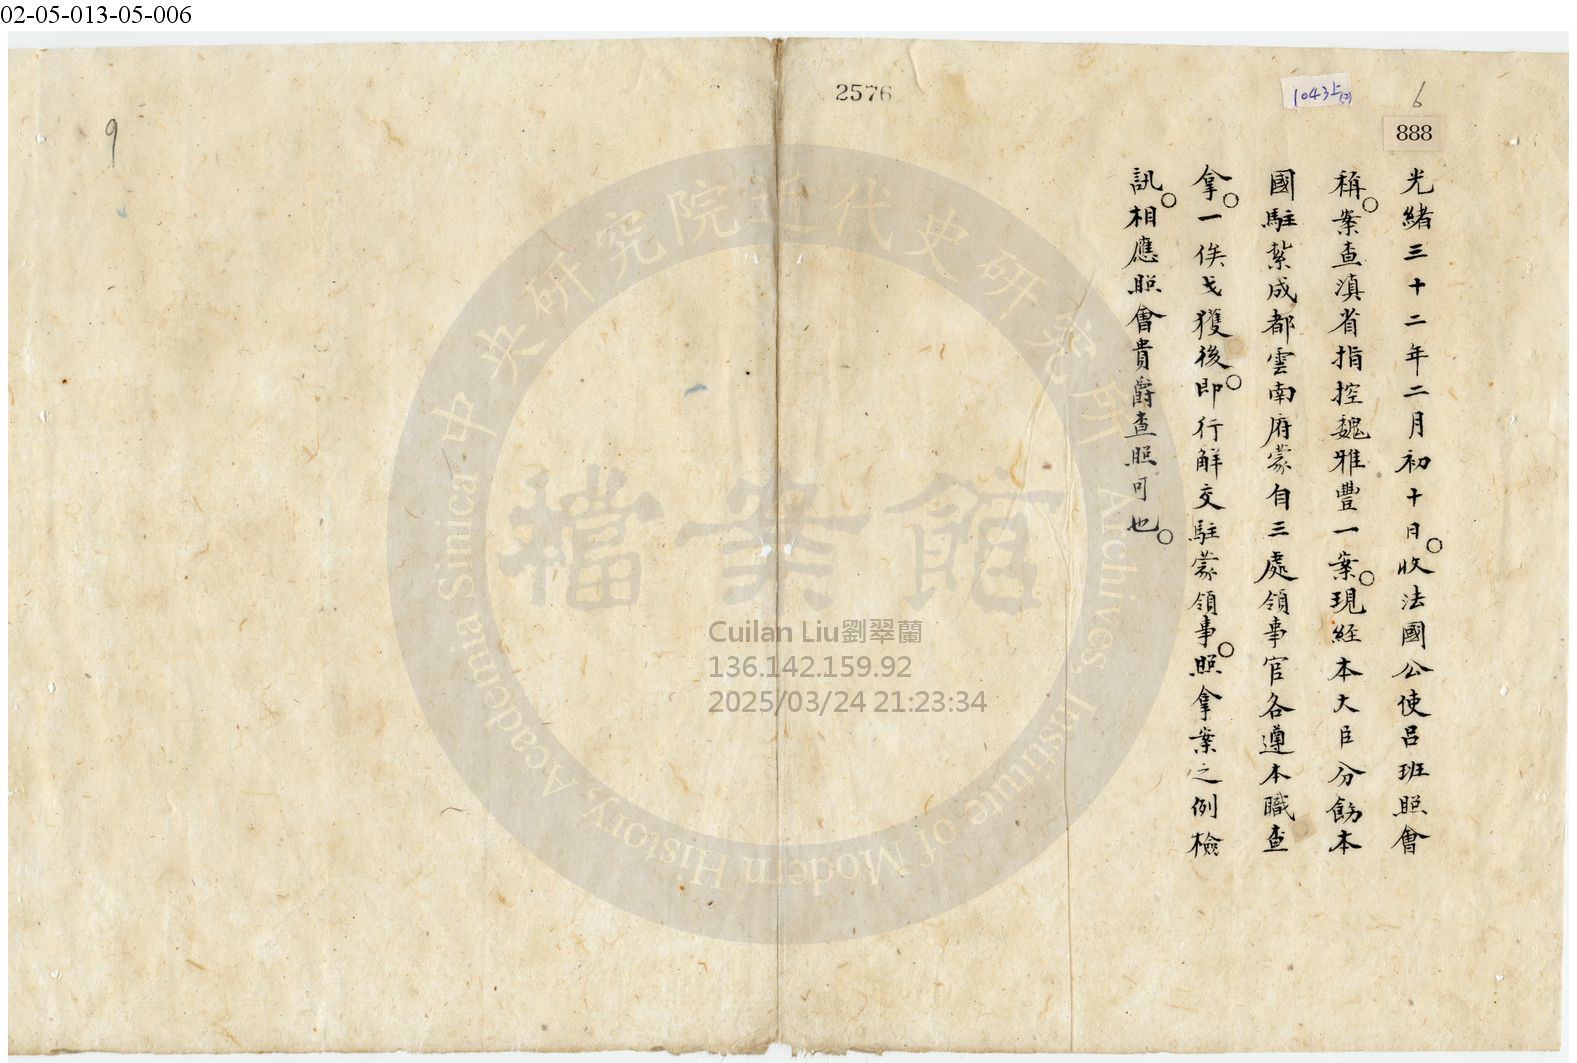 02-05-013-05-006
2576
1043上(2)
6
888
9
光緒三十二年二月初十日○收法國公使呂班照會
稱○案查滇省指控魏雅豐一案○現經本大臣分飭本
國駐紮成都雲南府蒙自三處領事官各遵本職查
拿○一俟弋獲後○即行解交駐蒙領事○照拿案之例檢
訊○相應照會貴爵查照可也○
中央研究院近代史研究所
檔案館
Academia Sinica
Archives, Institute of Modern History, Academia Sinica
Cuilan Liu劉翠蘭
136.142.159.92
2025/03/24 21:23:34